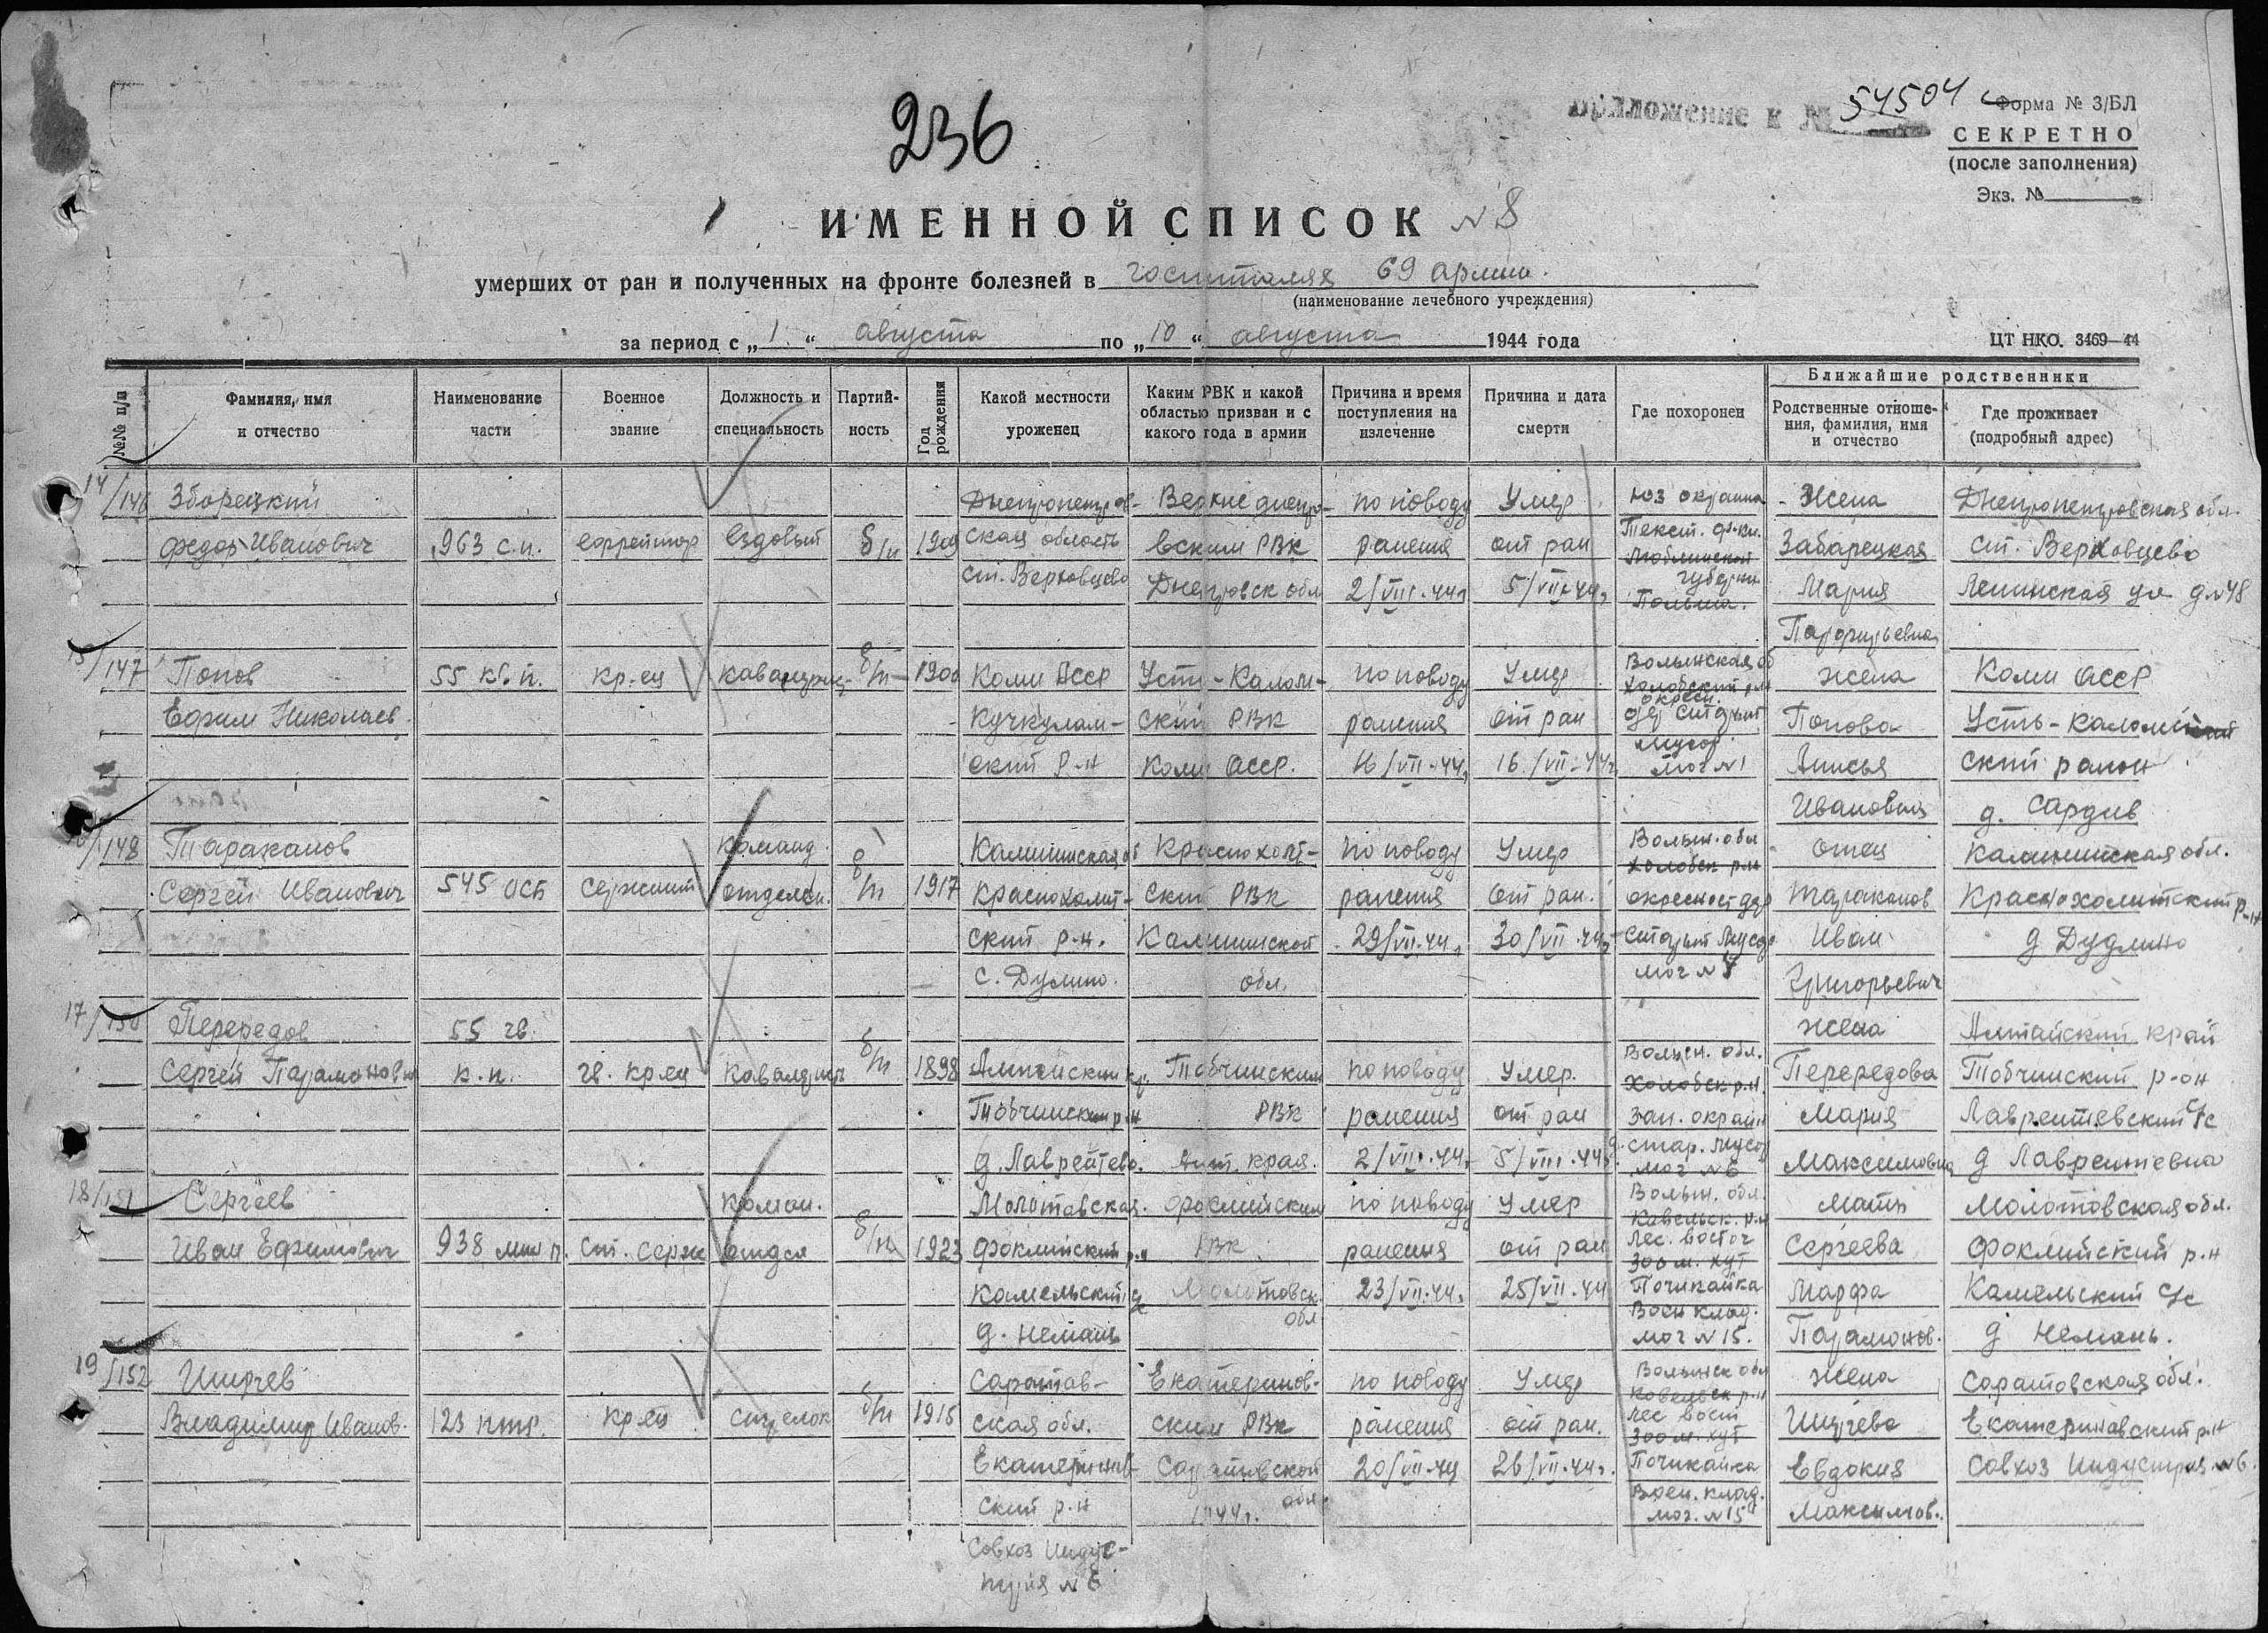 236
Приложение к № 54504
Форма № 3/БЛ
СЕКРЕТНО
(после заполнения)
Экз. №
ИМЕННОЙ СПИСОК №8
умерших от ран и полученных на фронте болезней в госпиталях 69 армии.
(наименование лечебного учреждения)
за период с „1“ августа по „10“ августа 1944 года
ЦТ НКО. 3469—44
№№ п/п
Фамилия, имя
и отчество
Наименование
части
Военное
звание
Должность и
специальность
Партий-
ность
Год
рождения
Какой местности
уроженец
Каким РВК и какой
областью призван и с
какого года в армии
Причина и время
поступления на
излечение
Причина и дата
смерти
Где похоронен
Ближайшие родственники
Родственные отноше-
ния, фамилия, имя
и отчество
Где проживает
(подробный адрес)
14/146
Зборецкий
Федор Иванович
963 с.п.
ефрейтор
ездовый
б/п
1909
Днепропетров-
ская область
ст. Верховцево
Верхнеднепро-
вским РВК
Днепровск обл
по поводу
ранения
2/VIII.44г
Умер
от ран
5/VIII.44г
Юз окраина
Текст. ф-ки.
Люблинской
губерни
Польша.
Жена
Забарецкая
Мария
Порфирьевна
Днепропетровская обл.
ст. Верховцево
Ленинская ул д №48
15/147
Попов
Ефим Николаев.
55 кв. п.
кр-ец
кавалерис-
б/п
1900
Коми АССР
Кучкулам-
ский р-н
Усть-Калом-
ский РВК
Коми АССР.
по поводу
ранения
16/VII-44г
Умер
от ран
16/VII-44г
Волынская об
Холобский р-н
окресн.
дер Старый
Мусор
мог №1
жена
Попова
Анисья
Ивановна
Коми АССР
Усть-Каломский
ский район
д. Сардив
148
Тараканов
Сергей Иванович
545 ОСБ
сержант
команд.
отделен.
б/п
1917
Калининская об
Краснохолмт-
ский р-н.
с. Дулино.
Краснохолт-
ский РВК
Калининской
обл.
по поводу
ранения
29/VII.44г
Умер
от ран.
30/VII.44г
Волын. обл
Холобск р-н
окресност дер
Старый Мусор
мог №7
отец
Тараканов
Иван
Григорьевич
Калининская обл.
Краснохолмтский р-н
д Дудлино
17/150
Передедов
Сергей Парамонович
55 гв.
к.п.
гв. кр-ец
Кавалерист
б/п
1898
Алтайский кр.
Тобчинский р-н
д. Лаврентево.
Тобчинским
РВК
Алт. края.
по поводу
ранения
2/VIII.44г
Умер.
от ран
5/VIII.44г
Волын. обл.
Холобск р.н.
зап. окраин
д. Стар. Мусор
мог №6
жена
Передедова
Мария
Максимовна
Алтайский край
Тобчинский р-он
Лаврентевский с/с
д Лаврентевна
18/151
Сергеев
Иван Ефимович
938 мин п.
ст. серж
коман.
отдел
б/п
1923
Молотовская.
Фоклийский р.н
Камельский с/с
д. Немань
Фоклийским
РВК
Молотовск.
обл
по поводу
ранения
23/VII.44г
Умер
от ран
25/VII.44
Волын. обл.
Ковельск. р.н
лес. восточ
300 м. хут
Почикайка
Воен клад.
мог №15.
Мать
Сергеева
Марфа
Парамонов.
Молотовская обл.
Фоклийский р.н
Камельский с/с
д Немань.
19/152
Ширчев
Владимир Иванов.
123 птр.
кр-ец
стрелок
б/п
1915
Саратов-
ская обл.
Екатеринов-
ский р.н
Совхоз Индус-
трия №6
Екатеринов-
ским РВК
Саратовской
обл.
по поводу
ранения
20/VII.44
Умер
от ран.
26/VII.44г.
Волынск обл
Ковельск р.н
лес вост
300 м. хут
Почикайка
Воен. клад.
мог. №15
жена
Ширчева
Евдокия
Максимов.
Саратовская обл.
Екатериновский р.н
совхоз Индустрия №6.